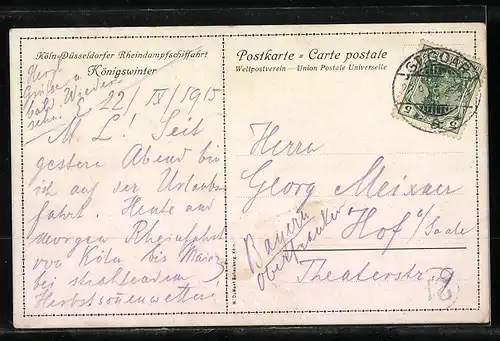 Köln-Düsseldorfer Rheindampfschiffahrt
Königswinter
Herzl.
Grüsse u.
bald. Wieder-
sehn.
22/IX/1913
M. L! Seit
gestern Abend bin
ich auf der Urlaubs-
fahrt. Heute und
morgen Rheinfahrt
von Köln bis Mainz
bei strahlendem
Herbstsonnenwetter!
Postkarte - Carte postale
Weltpostverein — Union Postale Universelle
ST. GOAR
Herrn
Georg Meixner
Hof a/Saale
Theaterstr. 9
Bayern
Oberfranken